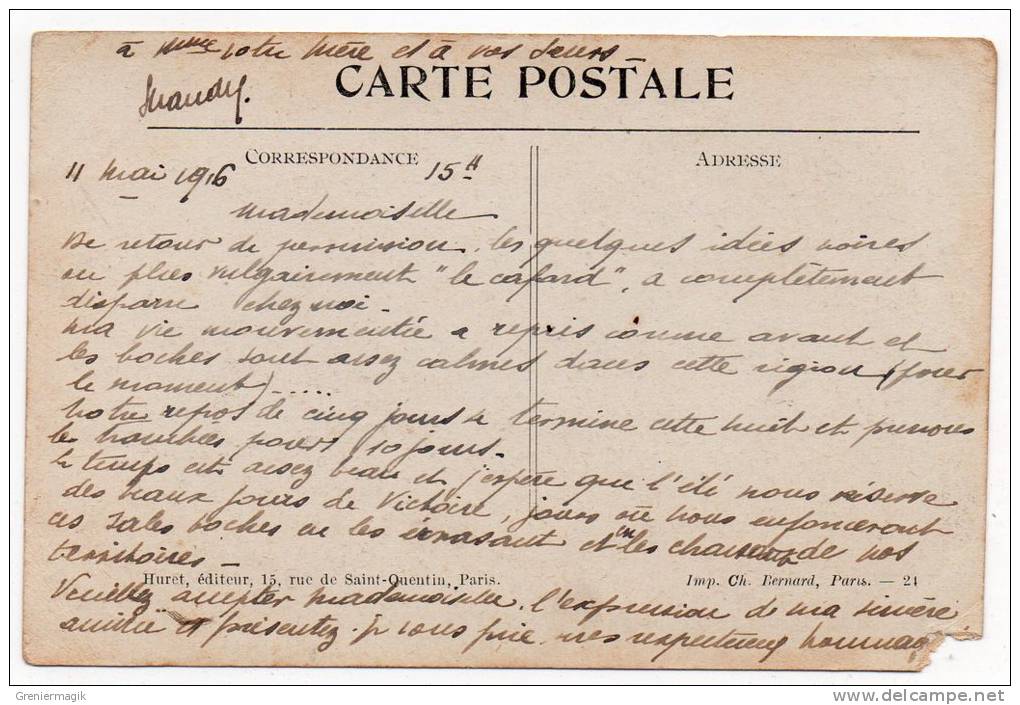 à Mme votre Mère et à vos Sœurs –
CARTE POSTALE
CORRESPONDANCE
ADRESSE
11 Mai 1916 15H
Mademoiselle
De retour de permission, les quelques idées noires
ou plus vulgairement "le cafard", a complètement
disparu chez moi.
Ma vie mouvementée a repris comme avant et
les boches sont assez calmes dans cette région (pour
le moment) .....
Notre repos de cinq jours se termine cette nuit et prenons
les tranchées pour 10 jours.
Le temps est assez beau et j'espère que l'été nous réserve
des beaux jours de Victoire, jours où nous enfonceront
ces sales boches en les écrasant et en les chassant de nos
territoires –
Huret, éditeur, 15, rue de Saint-Quentin, Paris.
Imp. Ch. Bernard, Paris. — 21
Veuillez accepter Mademoiselle, l'expression de ma sincère
amitié et présentez, je vous prie, mes respectueux hommag
Greniermagik
www.delcampe.net